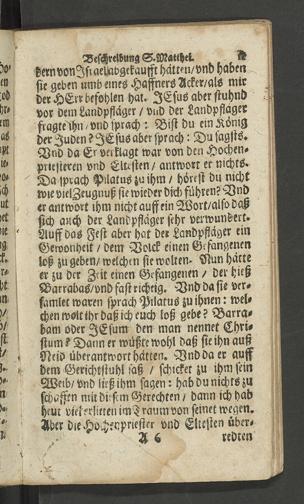 Beschreibung S. Matthei.
dern von Israel abgekaufft hätten/ vnd haben
sie geben umb eines Haffners Acker/ als mir
der HErr befohlen hat. JEsus aber stuhnd
vor dem Landpfläger / vnd der Landpfläger
fragte ihn / vnd sprach: Bist du ein König
der Juden? JEsus aber sprach: Du sagsts.
Vnd da Er verklagt war von den Hochen-
priesteren vnd Eltesten / antwort er nichts.
Da sprach Pilatus zu ihm / hörest du nicht
wie viel Zeugnuß sie wieder dich führen? Vnd
er antwort ihm nicht auff ein Wort/ also daß
sich auch der Landpfläger sehr verwundert.
Auff das Fest aber hat der Landpfläger ein
Gewonheit / dem Volck einen Gefangenen
loß zu geben/ welchen sie wolten. Nun hätte
er zu der Zeit einen Gefangenen / der hieß
Barrabas/ vnd fast richtig. Vnd da sie ver-
samlet waren sprach Pilatus zu ihnen: wel-
chen wolt ihr daß ich euch loß gebe? Barra-
bam oder JEsum den man nennet Chri-
stum? Dann er wüßte wohl daß sie ihn auß
Neid überantwort hätten. Vnd da er auff
dem Gerichtstuhl saß / schicket zu ihm sein
Weib/ vnd ließ ihm sagen: hab du nichts zu
schaffen mit diesem Gerechten / dann ich hab
heut viel erlitten im Traum von seinet wegen.
Aber die Hochenpriester vnd Eltesten über-
A 6 redten